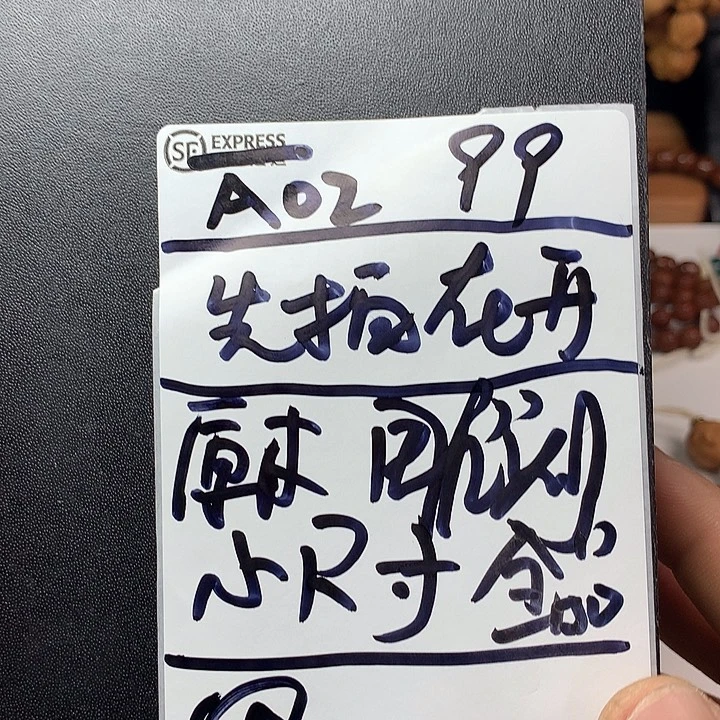 SF EXPRESS
A02 99
先拍在弄
原木 雕刻
小尺寸